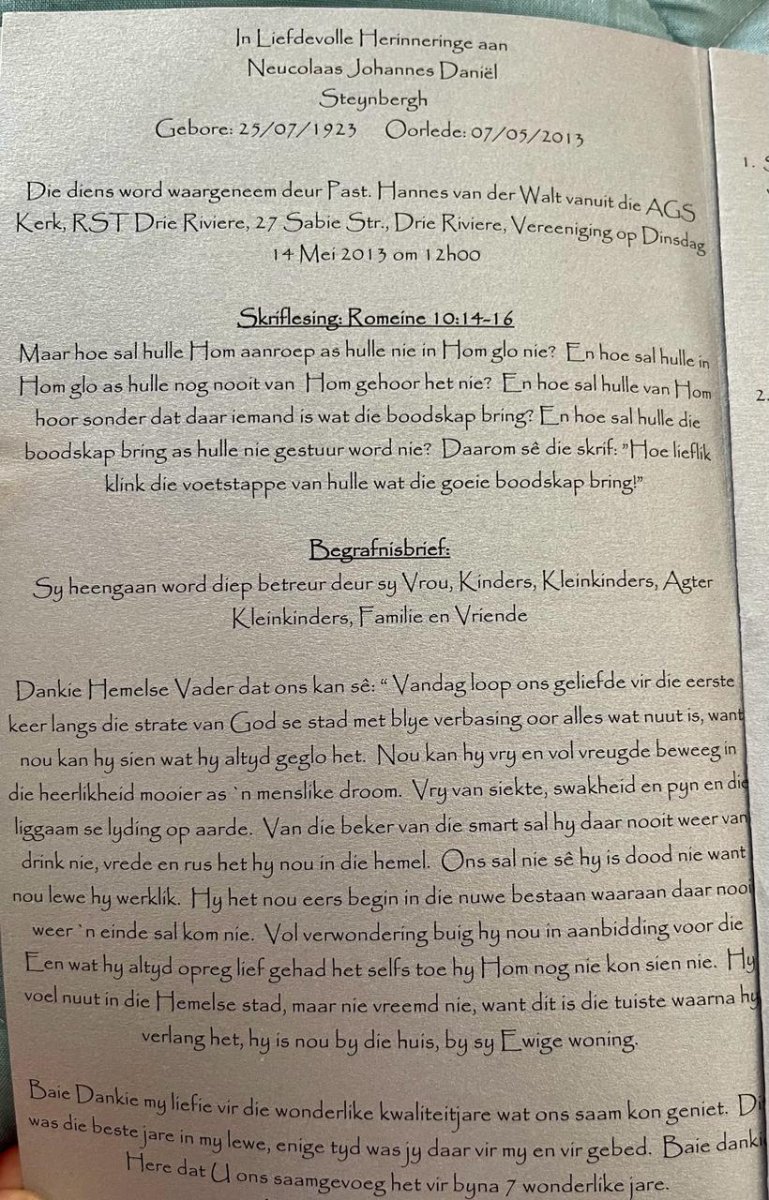 In Liefdevolle Herinneringe aan
Neucolaas Johannes Daniël
Steynbergh
Gebore: 25/07/1923 Oorlede: 07/05/2013
Die diens word waargeneem deur Past. Hannes van der Walt vanuit die AGS
Kerk, RST Drie Riviere, 27 Sabie Str., Drie Riviere, Vereeniging op Dinsdag
14 Mei 2013 om 12h00
Skriflesing: Romeine 10:14-16
Maar hoe sal hulle Hom aanroep as hulle nie in Hom glo nie? En hoe sal hulle in
Hom glo as hulle nog nooit van Hom gehoor het nie? En hoe sal hulle van Hom
hoor sonder dat daar iemand is wat die boodskap bring? En hoe sal hulle die
boodskap bring as hulle nie gestuur word nie? Daarom sê die skrif: "Hoe lieflik
klink die voetstappe van hulle wat die goeie boodskap bring!"
Begrafnisbrief:
Sy heengaan word diep betreur deur sy Vrou, Kinders, Kleinkinders, Agter
Kleinkinders, Familie en Vriende
Dankie Hemelse Vader dat ons kan sê: “ Vandag loop ons geliefde vir die eerste
keer langs die strate van God se stad met blye verbasing oor alles wat nuut is, want
nou kan hy sien wat hy altyd geglo het. Nou kan hy vry en vol vreugde beweeg in
die heerlikheid mooier as `n menslike droom. Vry van siekte, swakheid en pyn en die
liggaam se lyding op aarde. Van die beker van die smart sal hy daar nooit weer van
drink nie, vrede en rus het hy nou in die hemel. Ons sal nie sê hy is dood nie want
nou lewe hy werklik. Hy het nou eers begin in die nuwe bestaan waaraan daar nooi
weer `n einde sal kom nie. Vol verwondering buig hy nou in aanbidding voor die
Een wat hy altyd opreg lief gehad het selfs toe hy Hom nog nie kon sien nie. Hy
voel nuut in die Hemelse stad, maar nie vreemd nie, want dit is die tuiste waarna hy
verlang het, hy is nou by die huis, by sy Ewige woning.
Baie Dankie my liefie vir die wonderlike kwaliteitjare wat ons saam kon geniet. Di
was die beste jare in my lewe, enige tyd was jy daar vir my en vir gebed. Baie danki
Here dat U ons saamgevoeg het vir byna 7 wonderlike jare.
1. S
2.